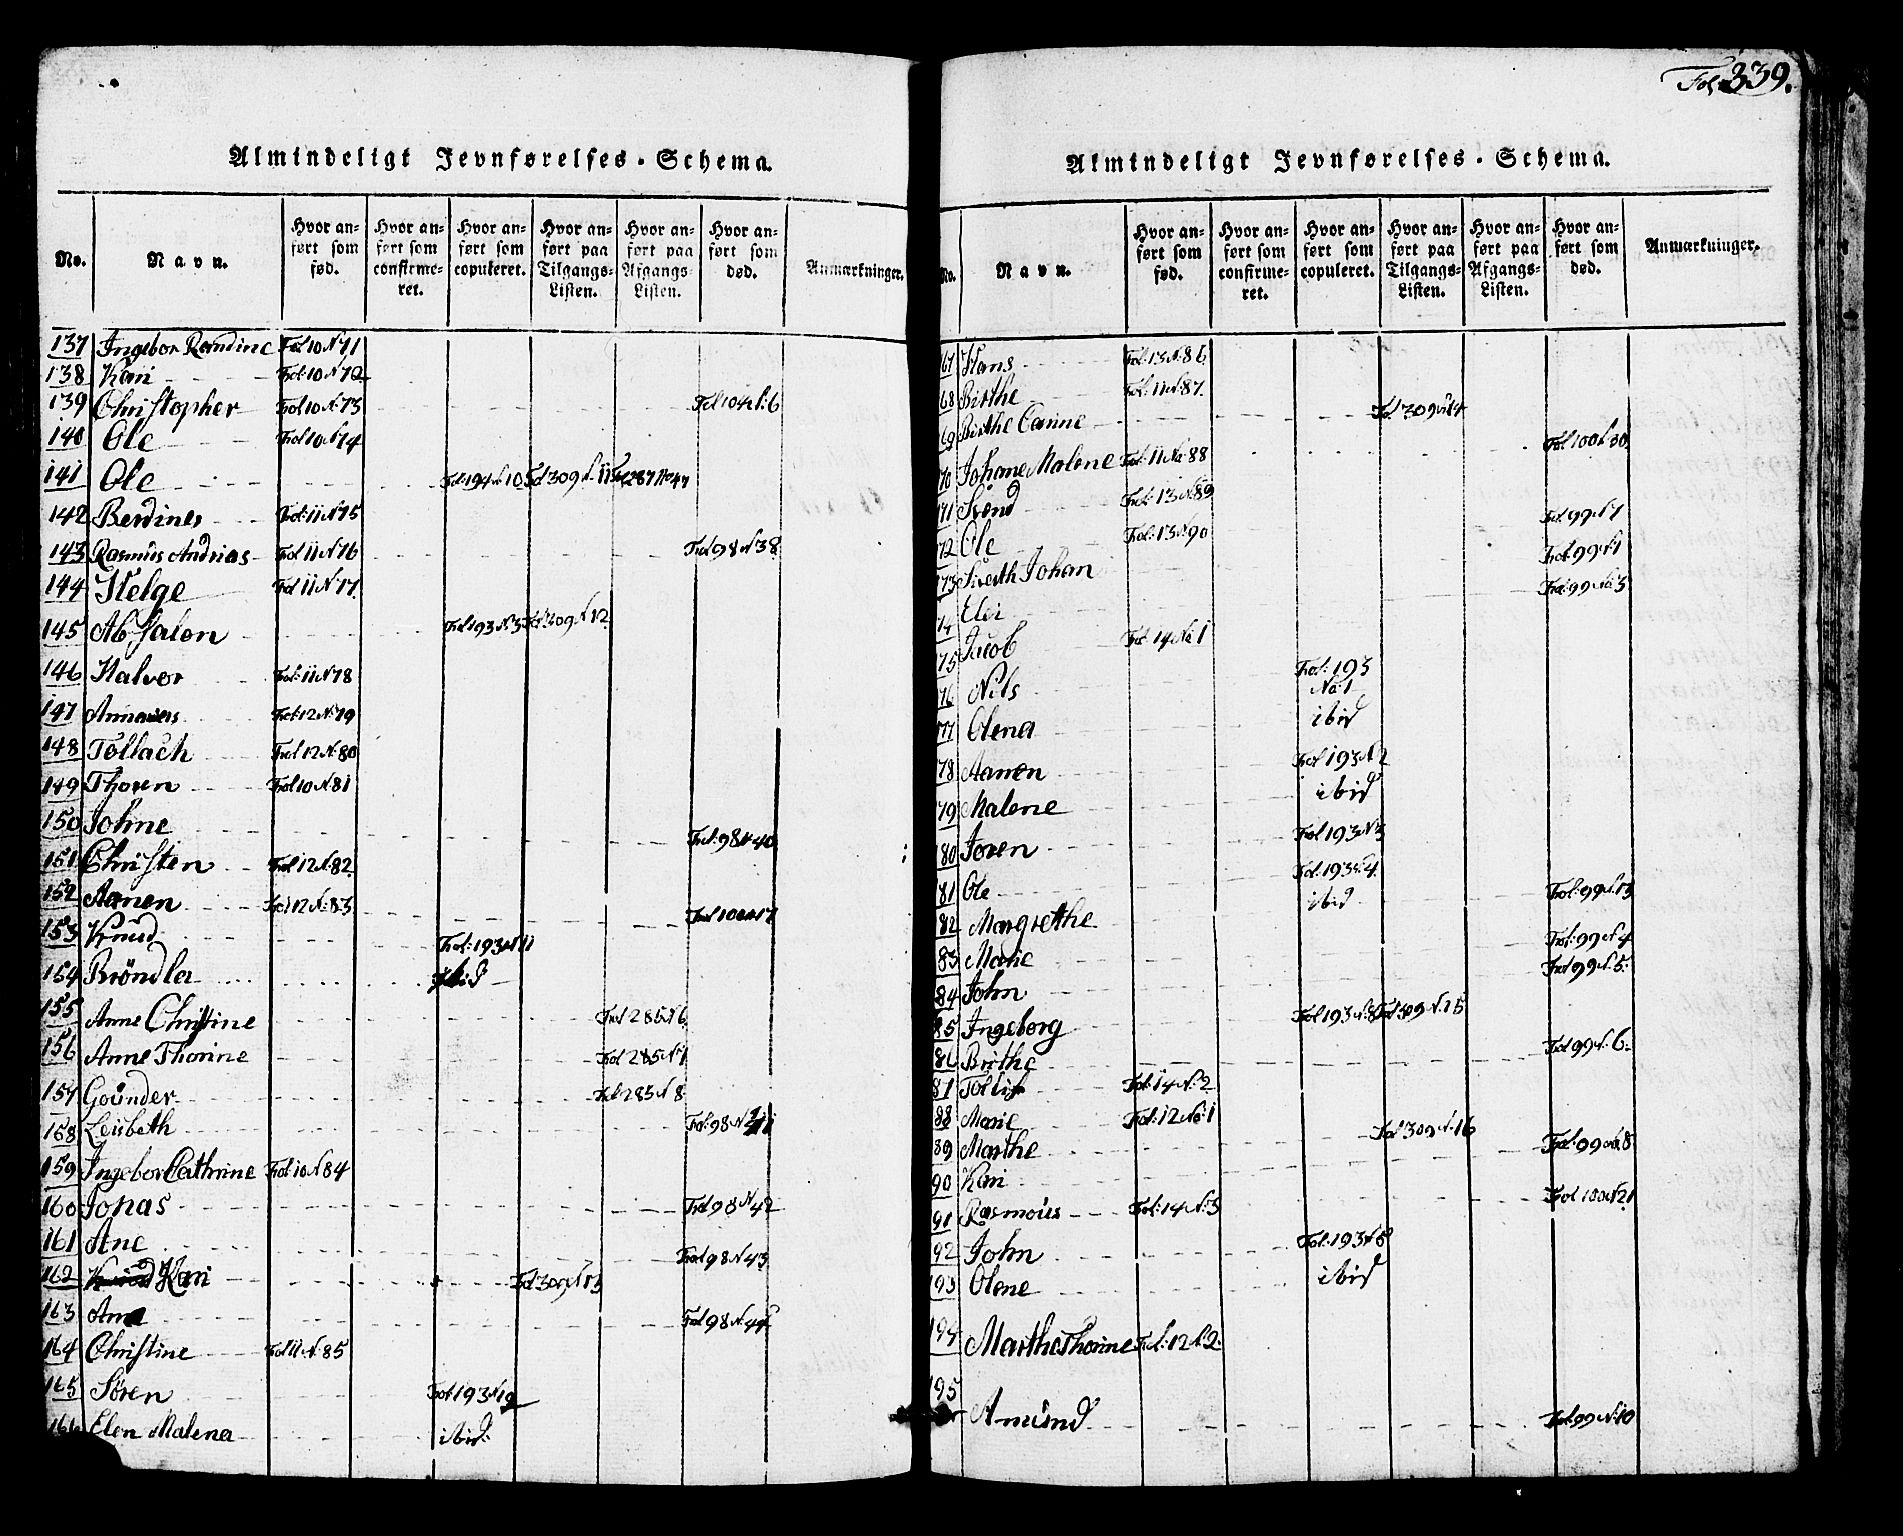 Fol: 339.
Almindeligt Jevnførelses-Schema.
No. Navn. Hvor anført som fød. Hvor anført som confirmeret. Hvor anført som copuleret. Hvor anført paa Tilgangs-Listen. Hvor anført paa Afgangs-Listen. Hvor anført som død. Anmærkninger.
137 Ingebor Randine Fol 10 N 71
138 Kari Fol: 10 N 72
139 Christopher Fol 10 N: 73 Fol 104 N: 6
140 Ole Fol 10 N 74
141 Ole Fol 194 N 10 Fol 309 N. 11 Fol 287 No 47
142 Berdines Fol: 11 N 75
143 Rasmus Andrias Fol 11 N 76 Fol 98 N 38
144 Helge Fol 11 N. 77
145 Absalon Fol 193 N. 3 Fol 309 N 12
146 Halvor Fol: 11 N 78
147 Fol: 12 N. 79
148 Tollach Fol 12 N. 80
149 Thoren Fol 10 N. 81
150 Johne Fol: 98 N 40
151 Christen Fol 12 N. 82
152 Aamen Fol 12 N: 83
153 Knud Fol: 193 N 11
154 Bröndla ibid
155 Anne Christine Fol 285 N 6
156 Anne Thorine Fol 285 N. 7
157 Gounder Fol 285 N 8
158 Leisbeth Fol: 98 N 41
159 Ingebor Cathrine Fol 10 N 84
160 Jonas Fol 98 N. 42
161 Ane Fol 98 N. 43
162 Kari Fol 309 N 13
163 Ane Fol 98 N. 44
164 Christine Fol 11 N. 85
165 Søren Fol 193 N 12
166 Elen Malena ibid:
Almindeligt Jevnførelses-Schema.
No. Navn. Hvor anført som fød. Hvor anført som confirmeret. Hvor anført som copuleret. Hvor anført paa Tilgangs-Listen. Hvor anført paa Afgangs-Listen. Hvor anført som død. Anmærkninger.
67 Hans Fol: 13 N: 86
68 Birthe Fol: 11 N: 87.
69 Birthe Carine Fol 309 N 14
70 Johane Malene Fol: 11 No: 88
71 Svend Fol: 13 N: 89
72 Ole Fol: 13 N: 90 Fol: 99 N 1
73 Siverth Johan
74 Eli Fol: 99 No: 3
75 Jacob Fol: 14 No 1
76 Nils Fol: 193 No: 1
77 Olena ibid
78 Aamen Fol 193 N 2
79 Malene ibid
80 Joren Fol 193 N 3
81 Ole Fol: 193 N. 4
82 Margrethe ibid
83 Marie Fol: 99 N. 4
84 John Fol 99 N. 5.
85 Ingeborg Fol 193 N: 8 Fol 309 N. 15
86 Birthe Fol 99 N. 6.
87 Fol: 14 N: 2
88 Marie Fol: 12 No: 1
89 Marthe Fol 309 N. 16 Fol: 99 No: 8
90 Kari Fol 100 N 21
91 Rasmous Fol: 14 N: 3
92 John Fol: 193 N 6
193 Olene ibid
194 Marthe Thorine Fol: 12 N. 2
195 Amund Fol: 99 N: 10